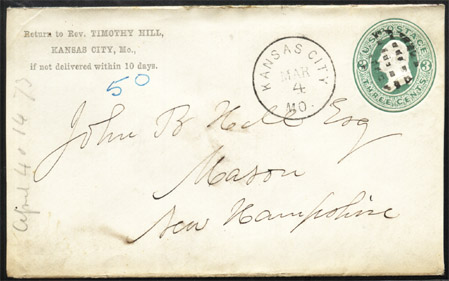 Return to Rev. TIMOTHY HILL,
KANSAS CITY, Mo.,
if not delivered within 10 days.
50
KANSAS CITY
MAR
4
MO.
U.S. POSTAGE
3 3
THREE CENTS
John B Hill Esq
Mason
New Hampshire